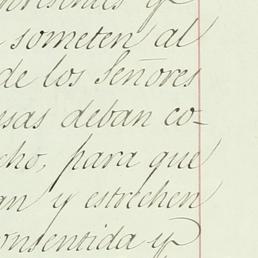 y
someten al
de los Señores
sas deban co-
cho, para que
an y estrechen
onsentida y